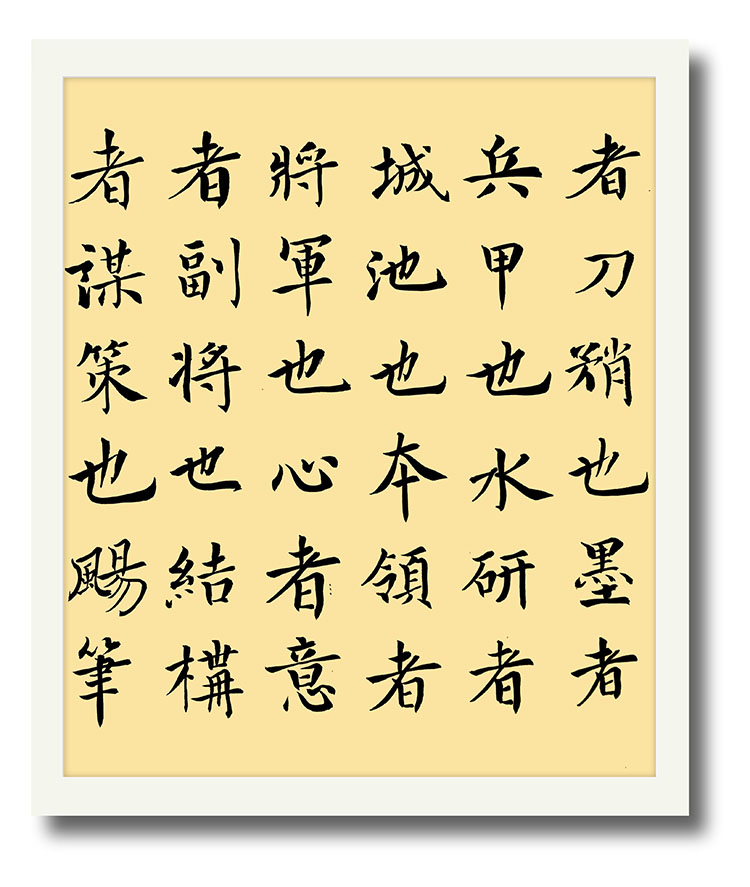 者刀矟也墨者
兵甲也水研者
城池也本領者
將軍也心者意
者副将也結構
者謀策也颺筆